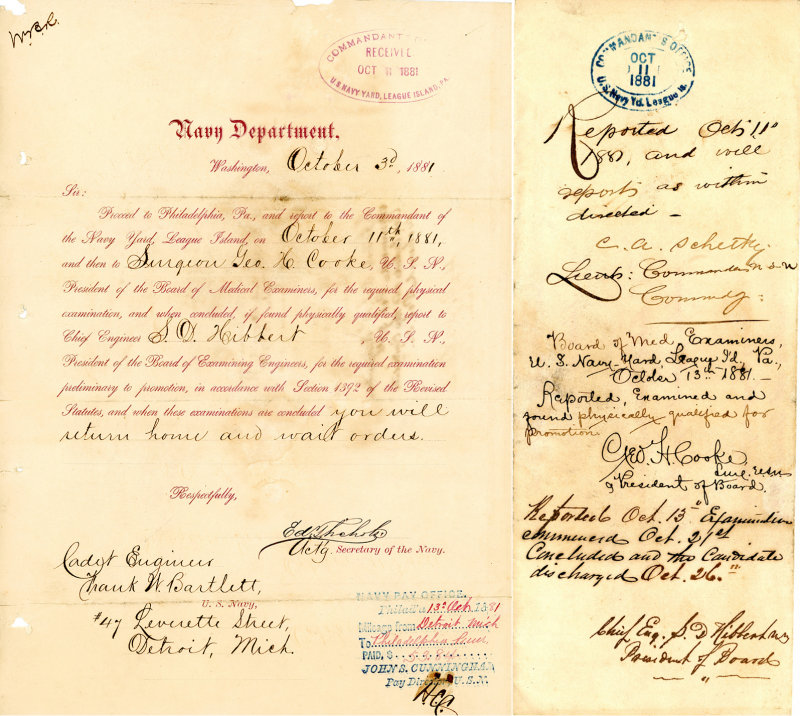 COMMANDANT'S
RECEIVED
OCT 11 1881
U.S. NAVY YARD, LEAGUE ISLAND, PA.
Navy Department,
Washington, October 3d, 1881
Sir:
Proceed to Philadelphia, Pa., and report to the Commandant of
the Navy Yard, League Island, on October 11th, 1881,
and then to Surgeon Geo. H. Cooke, U. S. N.,
President of the Board of Medical Examiners, for the required physical
examination, and when concluded, if found physically qualified, report to
Chief Engineer S. D. Hibbert, U. S. N.,
President of the Board of Examining Engineers, for the required examination
preliminary to promotion, in accordance with Section 1392 of the Revised
Statutes, and when these examinations are concluded you will
return home and wait orders.
Respectfully,
Actg. Secretary of the Navy.
Cadet Engineer
Frank W. Bartlett,
U. S. Navy,
#47 Leverette Street,
Detroit, Mich.
NAVY PAY OFFICE,
Philad'a 13 Oct. 1881
Mileage from Detroit Mich
To Philadelphia
PAID, $
JOHN S. CUNNINGHAM
Pay Director, U.S.N.
COMMANDANT'S OFFICE
OCT
11
1881
U.S. Navy Yd. League Is.
Reported Oct. 11th
1881, and will
report as within
directed -
C. A. Schetky
Lieut: Commander U S N
Commdg:
Board of Med. Examiners,
U. S. Navy Yard, League I'd, Pa.,
October 13th 1881.
Reported, Examined and
found physically qualified for
promotion.
Geo. H. Cooke,
Surg. U.S.N.
President of Board.
Reported Oct. 13th Examination
commenced Oct. 21st
Concluded and the Candidate
discharged Oct. 26th
Chief Eng. S. D. Hibbert
President of Board